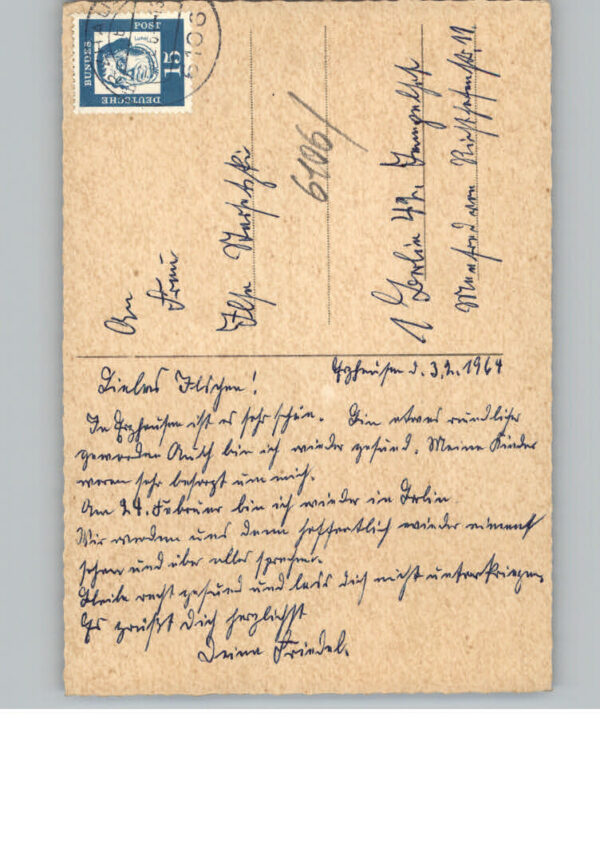 DEUTSCHE
BUNDES
POST
15
6106
6106/
An
Frau
Ilse
1 Berlin 42, Tempelhof
Manfred von Richthofenstr. 11
Erzhausen d. 3.2.1964
Liebes Ilschen!
In Erzhausen ist es sehr schön. Bin etwas rundlicher
geworden Auch bin ich wieder gesund. Meine Kinder
waren sehr besorgt um mich.
Am 24. Februar bin ich wieder in Berlin
Wir werden uns dann hoffentlich wieder einmal
sehen und über alles sprechen.
Bleibe recht gesund und lass dich nicht unterkriegen.
Es grüßt Dich herzlichst
Deine Friedel.